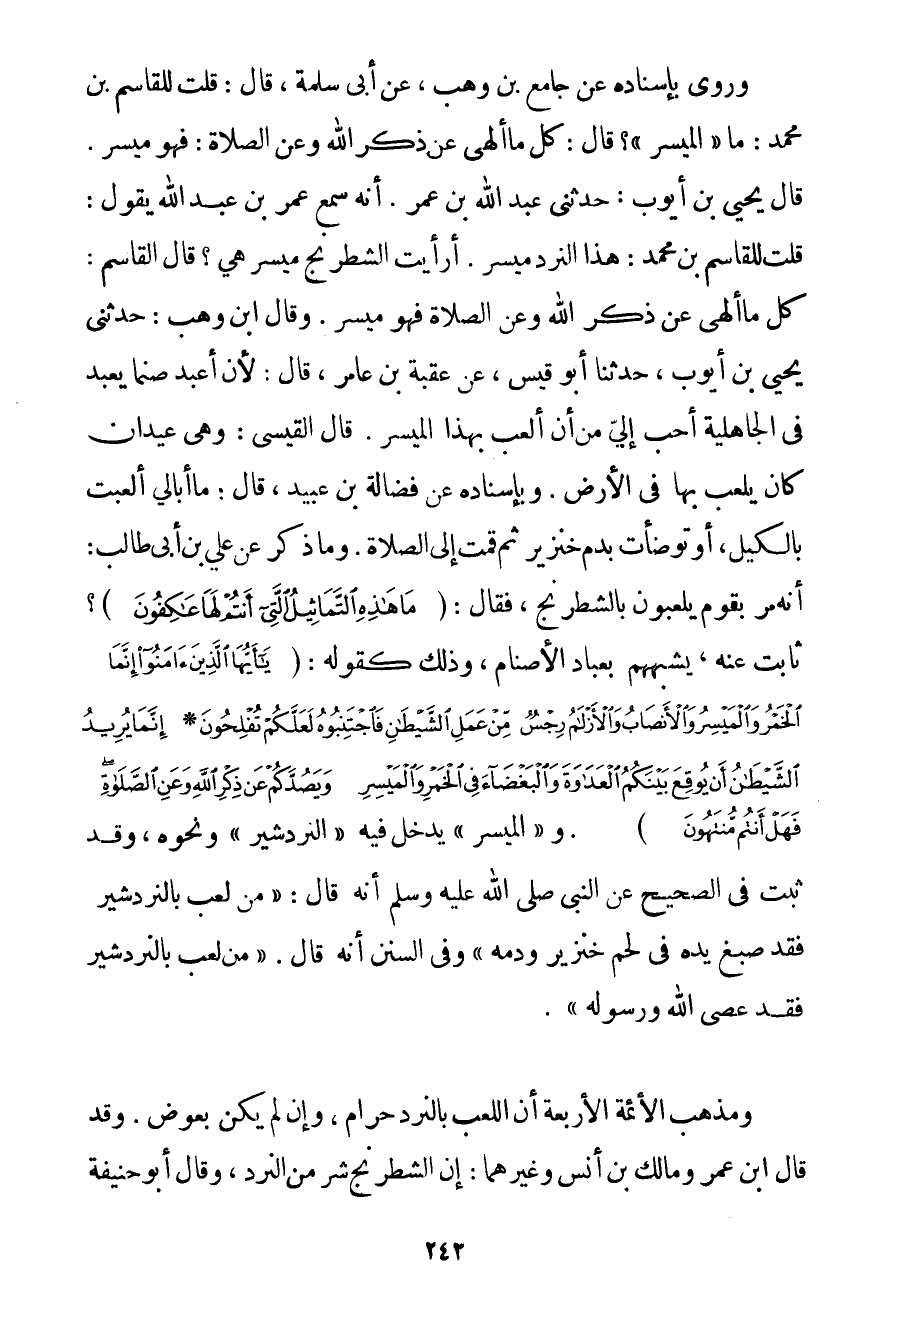 وروى بإسناده عن جامع بن وهب ، عن أبى سلمة ، قال : قلت للقاسم بن
محمد : ما « الميسر »؟ قال : كل ماألهى عن ذكر الله وعن الصلاة : فهو ميسر .
قال يحيى بن أيوب : حدثنى عبد الله بن عمر . أنه سمع عمر بن عبد الله يقول :
قلت للقاسم بن محمد : هذا النرد ميسر . أرأيت الشطرنج ميسر هي ؟ قال القاسم :
كل ماألهى عن ذكر الله وعن الصلاة فهو ميسر . وقال ابن وهب : حدثنى
يحيى بن أيوب ، حدثنا أبو قيس ، عن عقبة بن عامر ، قال : لأن أعبد صنما يعبد
فى الجاهلية أحب إليّ من أن ألعب بهذا الميسر . قال القيسى : وهى عيدان
كان يلعب بها فى الأرض . وبإسناده عن فضالة بن عبيد ، قال : ماأبالي ألعبت
بالكيل، أو توضأت بدم خنزير ثم قمت إلى الصلاة . وما ذكر عن علي بن أبى طالب:
أنه مر بقوم يلعبون بالشطرنج ، فقال : ( مَا هَٰذِهِ ٱلتَّمَاثِيلُ ٱلَّتِىٓ أَنتُمْ لَهَا عَٰكِفُونَ ) ؟
ثابت عنه ، يشبههم بعباد الأصنام ، وذلك كقوله : ( يَٰٓأَيُّهَا ٱلَّذِينَ ءَامَنُوٓا۟ إِنَّمَا
ٱلْخَمْرُ وَٱلْمَيْسِرُ وَٱلْأَنصَابُ وَٱلْأَزْلَٰمُ رِجْسٌ مِّنْ عَمَلِ ٱلشَّيْطَٰنِ فَٱجْتَنِبُوهُ لَعَلَّكُمْ تُفْلِحُونَ * إِنَّمَا يُرِيدُ
ٱلشَّيْطَٰنُ أَن يُوقِعَ بَيْنَكُمُ ٱلْعَدَٰوَةَ وَٱلْبَغْضَآءَ فِى ٱلْخَمْرِ وَٱلْمَيْسِرِ وَيَصُدَّكُمْ عَن ذِكْرِ ٱللَّهِ وَعَنِ ٱلصَّلَوٰةِۖ
فَهَلْ أَنتُم مُّنتَهُونَ ) . و « الميسر » يدخل فيه « النردشير » ونحوه ، وقد
ثبت فى الصحيح عن النبي صلى الله عليه وسلم أنه قال : « من لعب بالنردشير
فقد صبغ يده فى لحم خنزير ودمه » وفى السنن أنه قال . « من لعب بالنردشير
فقد عصى الله ورسوله » .
ومذهب الأئمة الأربعة أن اللعب بالنرد حرام ، وإن لم يكن بعوض . وقد
قال ابن عمر ومالك بن أنس وغيرهما : إن الشطرنج شر من النرد ، وقال أبو حنيفة
٢٤٣